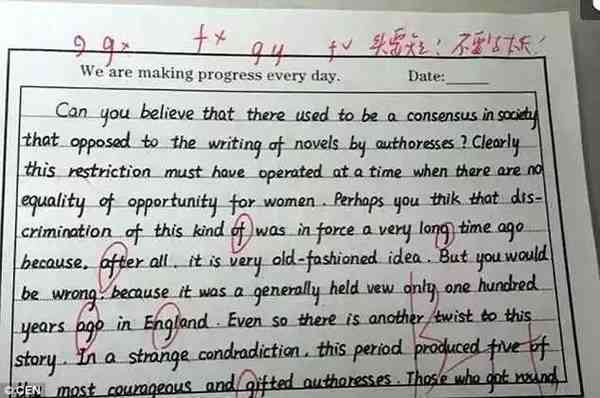 9 9x fx 9y fv 头要短! 不要
We are making progress every day. Date:
Can you believe that there used to be a consensus in society
that opposed to the writing of novels by authoresses ? Clearly
this restriction must have operated at a time when there are no
equality of opportunity for women . Perhaps you thik that dis-
crimination of this kind of was in force a very long time ago
because, after all , it is very old-fashioned idea . But you would
be wrong, because it was a generally held vew only one hundred
years ago in England . Even so there is another twist to this
story . In a strange condradiction , this period produced five of
the most courageous and gifted authoresses . Those who got round
©CEN